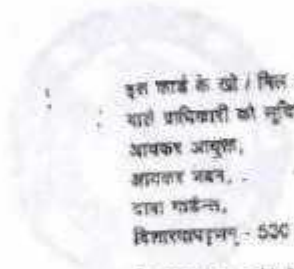 इस कार्ड के खो / मिल
वाले प्राधिकारी को सूचि
आयकर आयुक्त,
आयकर भवन,
दाबा गार्डन्स,
विशाखापट्टनम् - 530